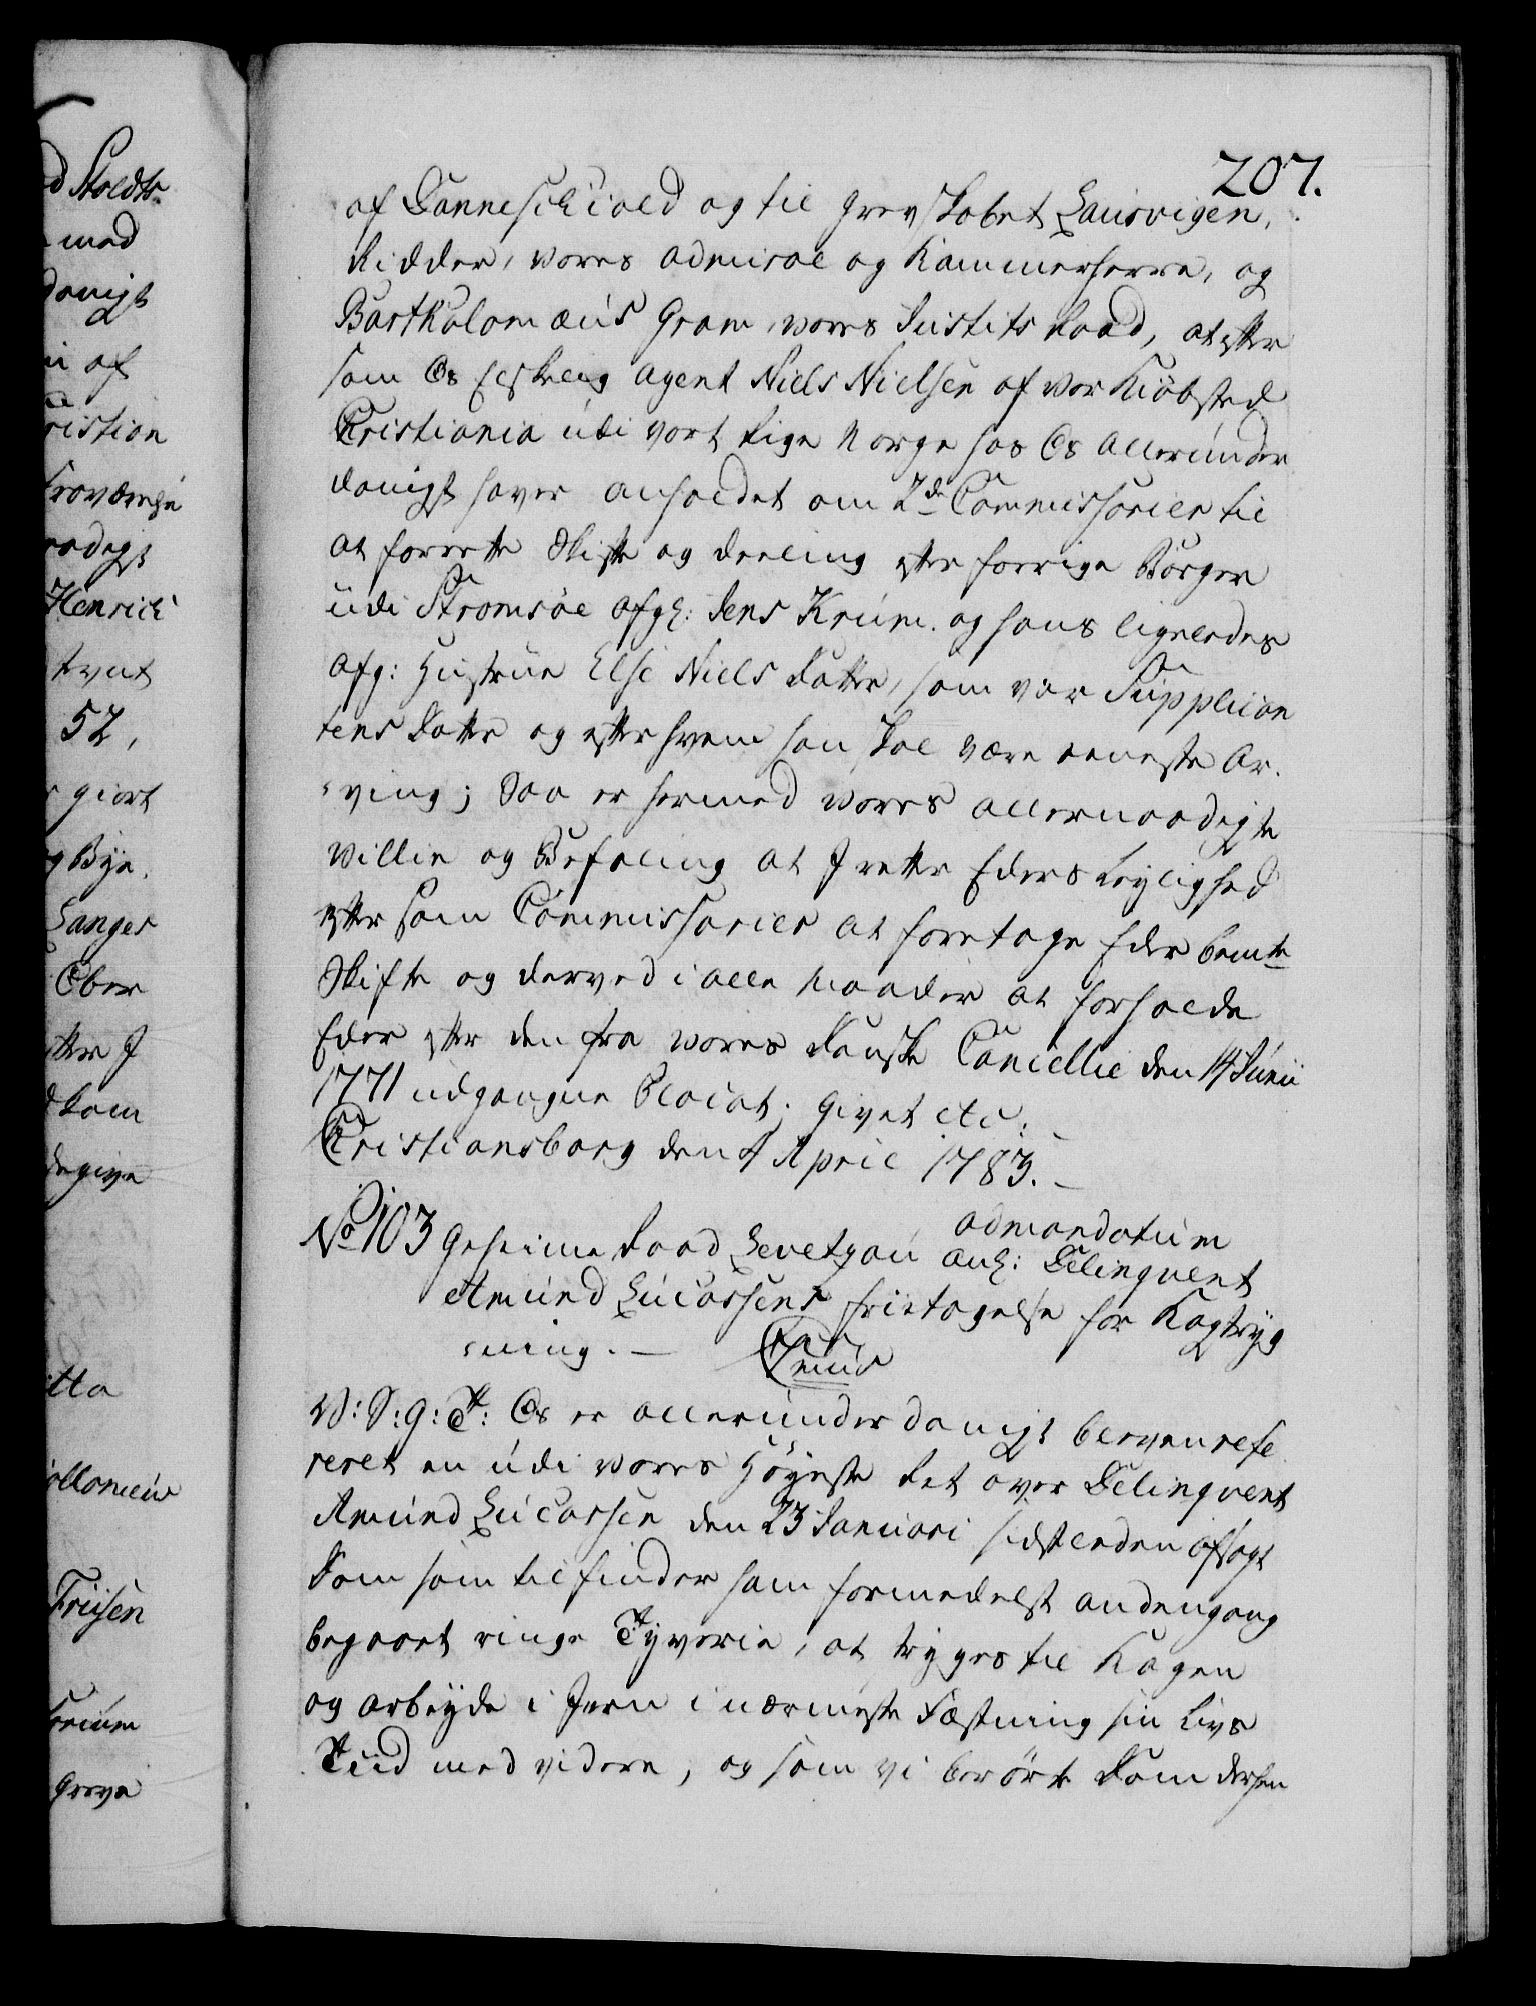 207.
af Danneschiold og til Grevskabet Laurvigen,
Ridder, vores Admiral og Kammerherre, og
Bartholomæus Gram, vores Justits Raad, at efter
som Os Elskelig Agent Niels Nielsen af vor Kiöbsted
Christiania udi vort Rige Norge hos Os allerunder
danigst haver anholdet om 2de Commissarier til
at forrette Skifte og Deeling efter forrige Borger
udi Stromsöe afg: Jens Krum. og hans ligeledes
afg: Hustrue Else Niels Datter, som var Supplican
tens Datter og efter hvem han skal være eeneste Ar.
ving; Saa er hermed vores allernaadigste
Villie og Befaling at I rette Eders Leylighed
efter som Commissarier at foretage Eder bemte
Skifte og derved i alle Maader at forholde
Eder efter den fra vores Danske Cancellie den 14 Junii
1771 udgangne Placat. Givet etc.
Christiansborg den 4 April 1783.
No 103 Geheime Raad Levetzau admandatum
anl: Delinqvent
Amund Lucassens Fritagelse for Kagstryg
ning. —
V: S: G: T: Os er allerunderdanigst bleven refe
reret en udi vores Höyeste Ret over Delinqvent
Amund Lucassen den 23 Januari sidstleeden afsagt
Dom som tilfinder ham formedelst andengang
begaaet ringe Tyverie, at stryges til Kagen
og arbeyde i Jern i nærmeste Fæstning sin Livs
Tiid med videre, og som vi berörte Dom dersen
d Stoldts
med
danigst
af
ristian
fraværende
naadigst
Henrich
52,
giort
g Bye.
Langes
Ober
efter I
som
degive
Friisen
Greve